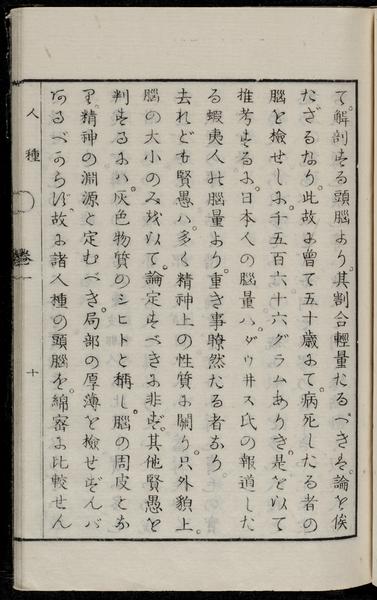 て。解剖する頭脳より。其割合軽量なるべきは。論を俟
たざるなり。此故に曽て五十歳にて。病死したる者の
脳を検せしに。千五百六十六グラムありき。是を以て
推考するに。日本人の脳量ハ。ダウ井ス氏の報道した
る蝦夷人の脳量より。重き事瞭然たる者なり。
去れども賢愚ハ。多く精神上の性質に関り。只外貌上。
脳の大小のみを以て。論定すべきに非ず。其他賢愚を
判するにハ。灰色物質のシヒトと称し。脳の周皮とな
り。精神の淵源と定むべき。局部の厚薄を検せずんバ
あるべからず。故に諸人種の頭脳を。綿密に比較せん
人種
一
十